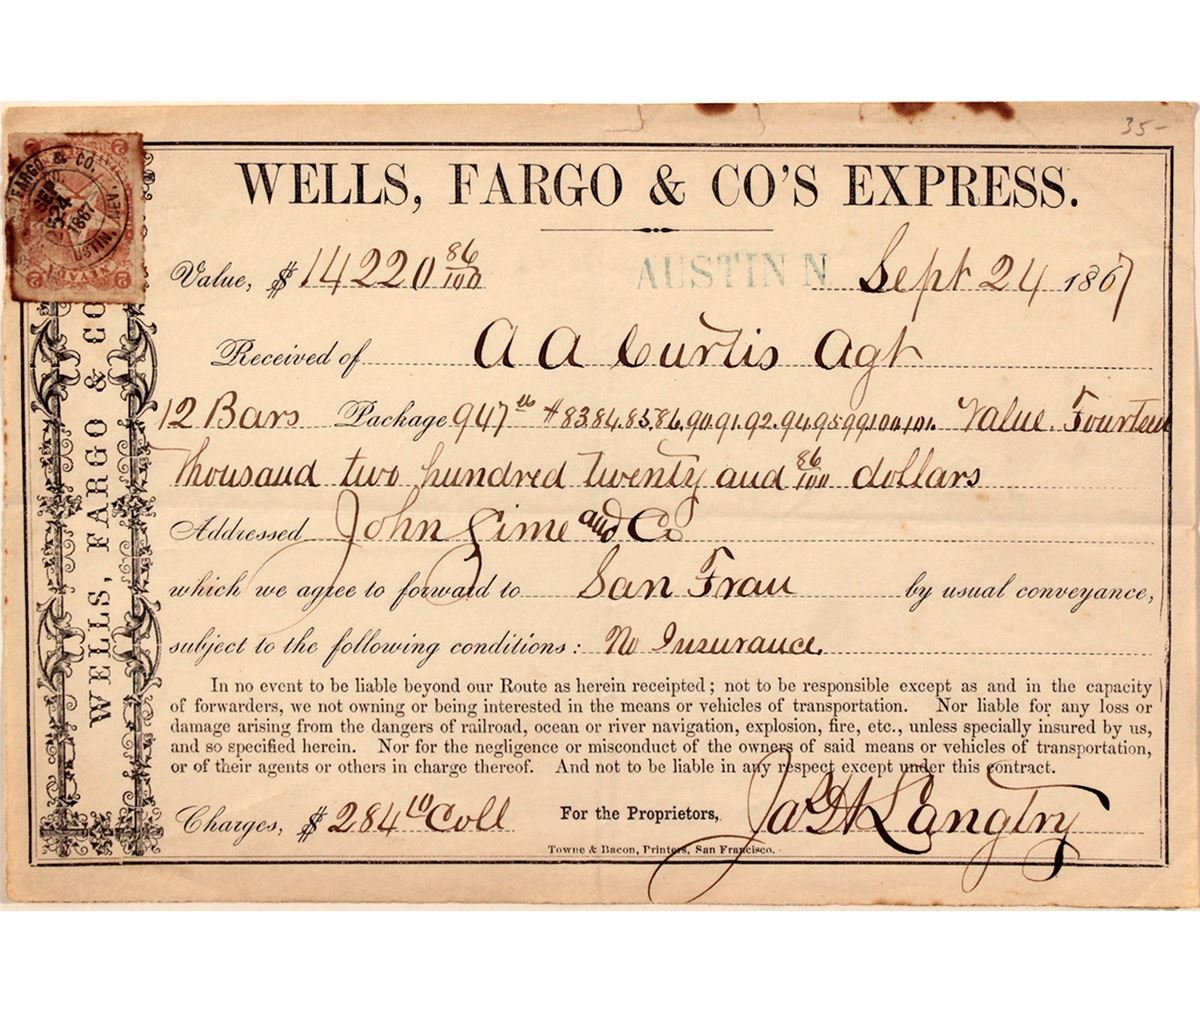 35-
WELLS, FARGO & CO'S EXPRESS.
Value, $ 14220 86/100 AUSTIN N Sept 24 1867
Received of A A Curtis Agt
12 Bars Package 947 lb # 83.84.85.86.90.91.92.94.95.99.100.101. Value. Fourteen
Thousand two hundred Twenty and 86/100 dollars
Addressed John Sime and Co
which we agree to forward to San Fran by usual conveyance,
subject to the following conditions: No Insurance.
In no event to be liable beyond our Route as herein receipted; not to be responsible except as and in the capacity
of forwarders, we not owning or being interested in the means or vehicles of transportation. Nor liable for any loss or
damage arising from the dangers of railroad, ocean or river navigation, explosion, fire, etc., unless specially insured by us,
and so specified herein. Nor for the negligence or misconduct of the owners of said means or vehicles of transportation,
or of their agents or others in charge thereof. And not to be liable in any respect except under this contract.
Charges, $ 284 10 Coll For the Proprietors, Jas H Langtry
Towne & Bacon, Printers, San Francisco.
WELLS, FARGO & CO
FARGO & CO.
SEP
24
1867
AUSTIN, NEV.
NEVADA
2 2 2 2